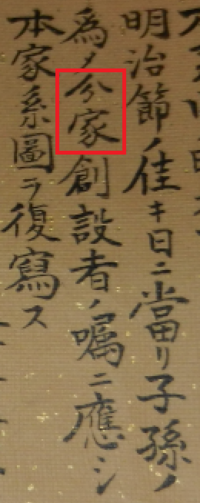 明治節ノ佳キ日ニ當リ子孫ノ
為メ分家創設者ノ嘱ニ應シ
本家系圖ヲ復寫ス